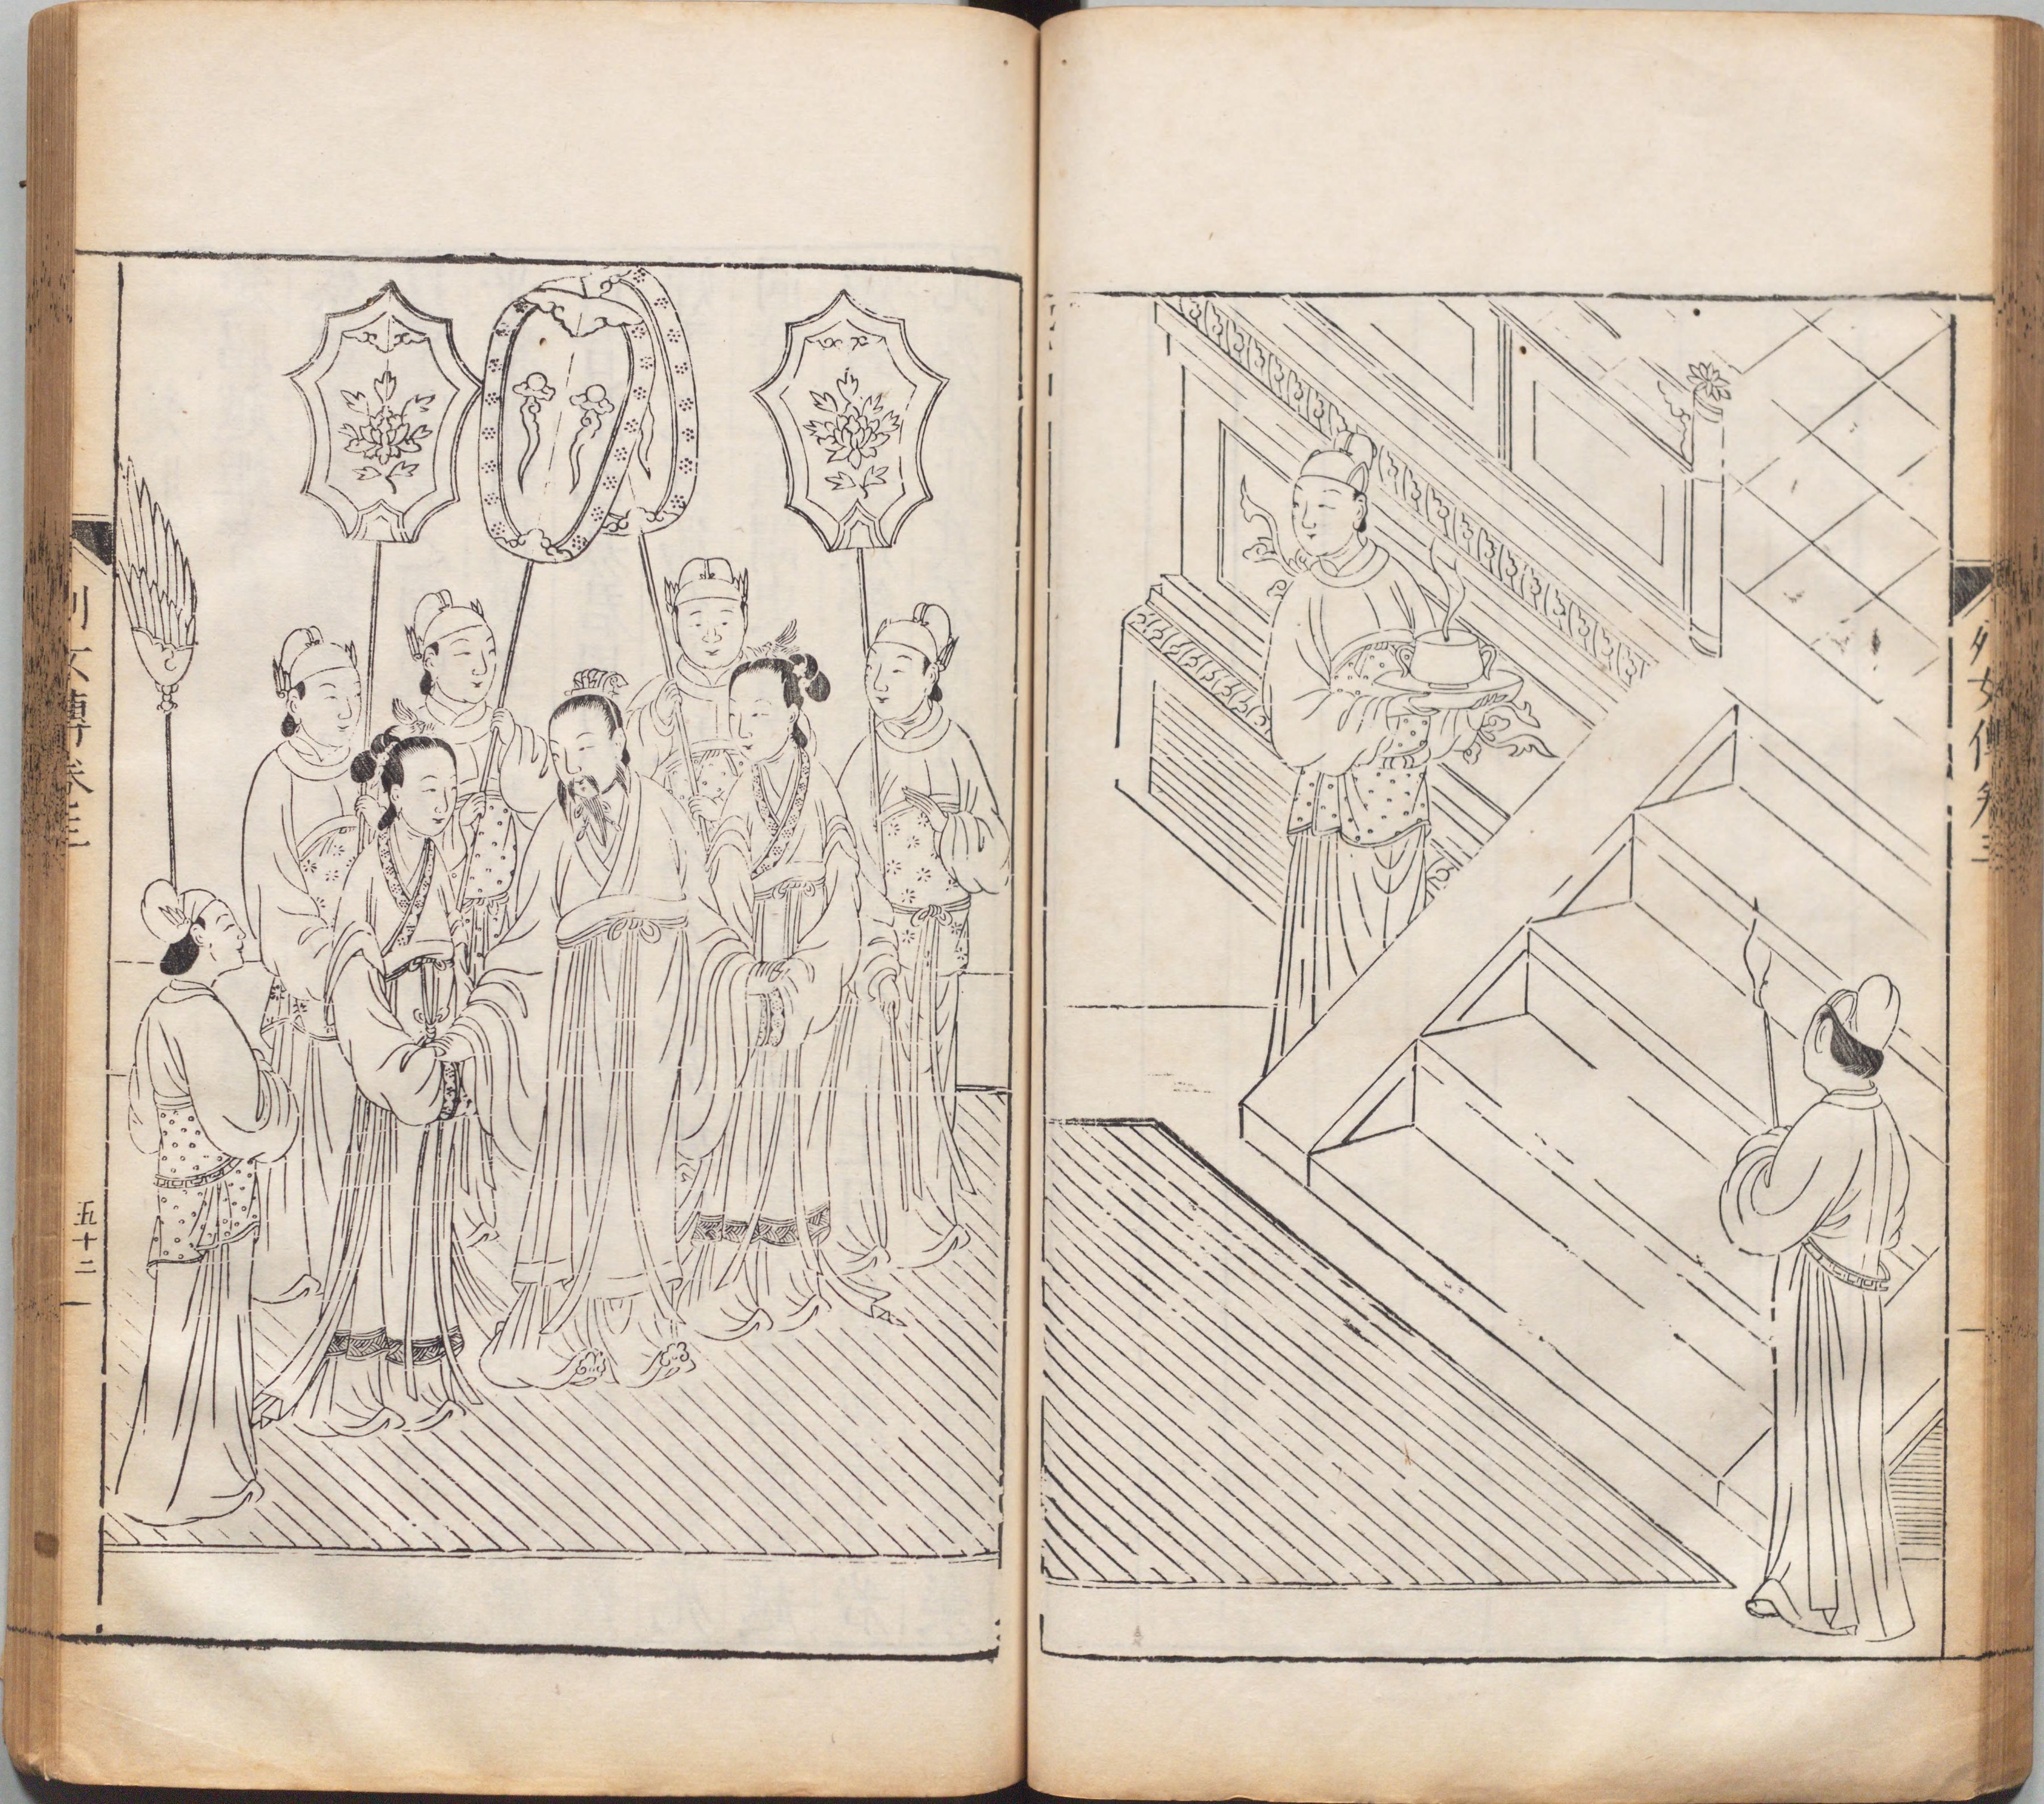 列女傳卷三
列女傳卷三
五十二